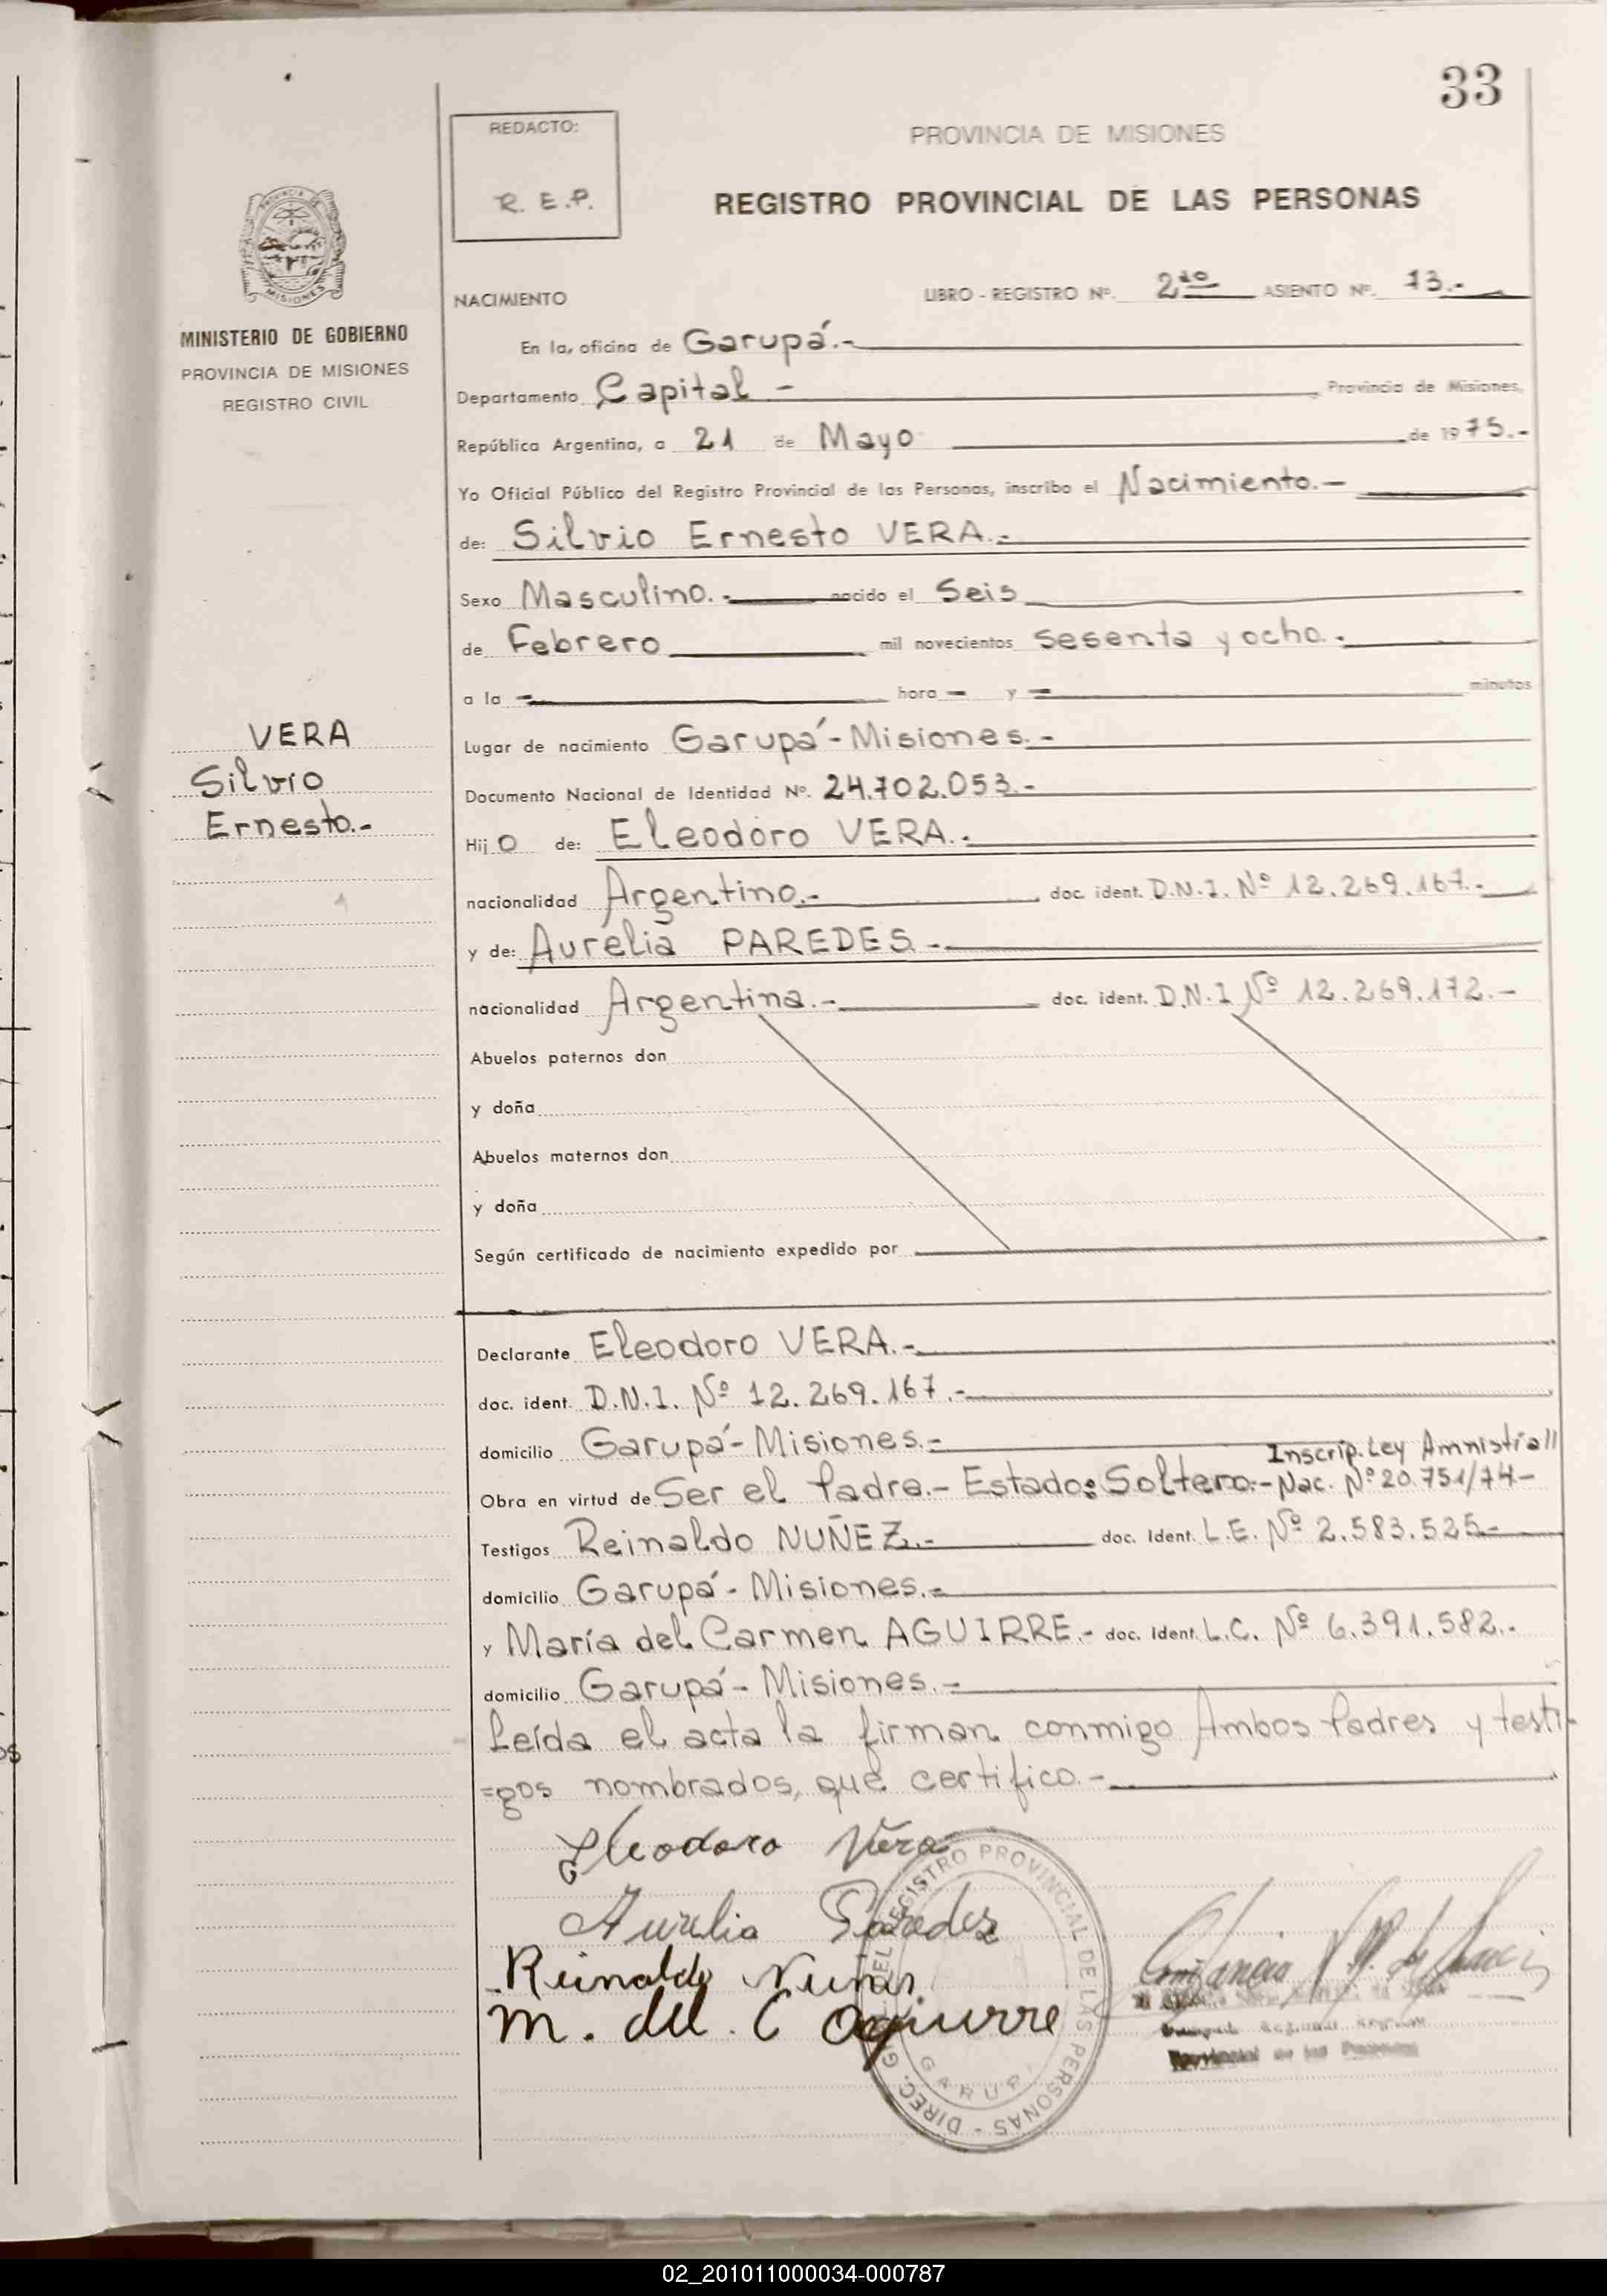 33
REDACTO:
R. E. P.
PROVINCIA DE MISIONES
REGISTRO PROVINCIAL DE LAS PERSONAS
PROVINCIA DE
MISIONES
MINISTERIO DE GOBIERNO
PROVINCIA DE MISIONES
REGISTRO CIVIL
VERA
Silvio
Ernesto.-
NACIMIENTO LIBRO - REGISTRO Nº. 2do ASIENTO Nº. 73.-
En la, oficina de Garupá.-
Departamento Capital - , Provincia de Misiones,
República Argentina, a 21 de Mayo de 1975.-
Yo Oficial Público del Registro Provincial de las Personas, inscribo el Nacimiento.-
de: Silvio Ernesto VERA.-
Sexo Masculino.- nacido el Seis
de Febrero mil novecientos sesenta y ocho.-
a la - hora - y - minutos
Lugar de nacimiento Garupá - Misiones.-
Documento Nacional de Identidad Nº. 24.702.053.-
Hijo de: Eleodoro VERA.-
nacionalidad Argentino.- doc. ident. D.N.I. Nº 12.269.167.-
y de: Aurelia PAREDES.-
nacionalidad Argentina.- doc. ident. D.N.I Nº 12.269.172.-
Abuelos paternos don
y doña
Abuelos maternos don
y doña
Según certificado de nacimiento expedido por
Declarante Eleodoro VERA.-
doc. ident. D.N.I. Nº 12.269.167.-
domicilio Garupá - Misiones.-
Inscrip. Ley Amnistía
Obra en virtud de Ser el Padre.- Estado: Soltero.- Nac. Nº 20.751/74-
Testigos Reinaldo NUÑEZ.- doc. Ident. L.E. Nº 2.583.525-
domicilio Garupá - Misiones.-
y María del Carmen AGUIRRE.- doc. Ident. L.C. Nº 6.391.582.-
domicilio Garupá - Misiones.-
Leída el acta la firman conmigo Ambos Padres y testi-
=gos nombrados, que certifico.-
Eleodoro Vera
Aurelia Paredez
Reinaldo Nuñes
M. del. C Aguirre
DIREC. G DEL REGISTRO PROVINCIAL DE LAS PERSONAS -
GARUP
Provincial de las Personas
02_201011000034-000787